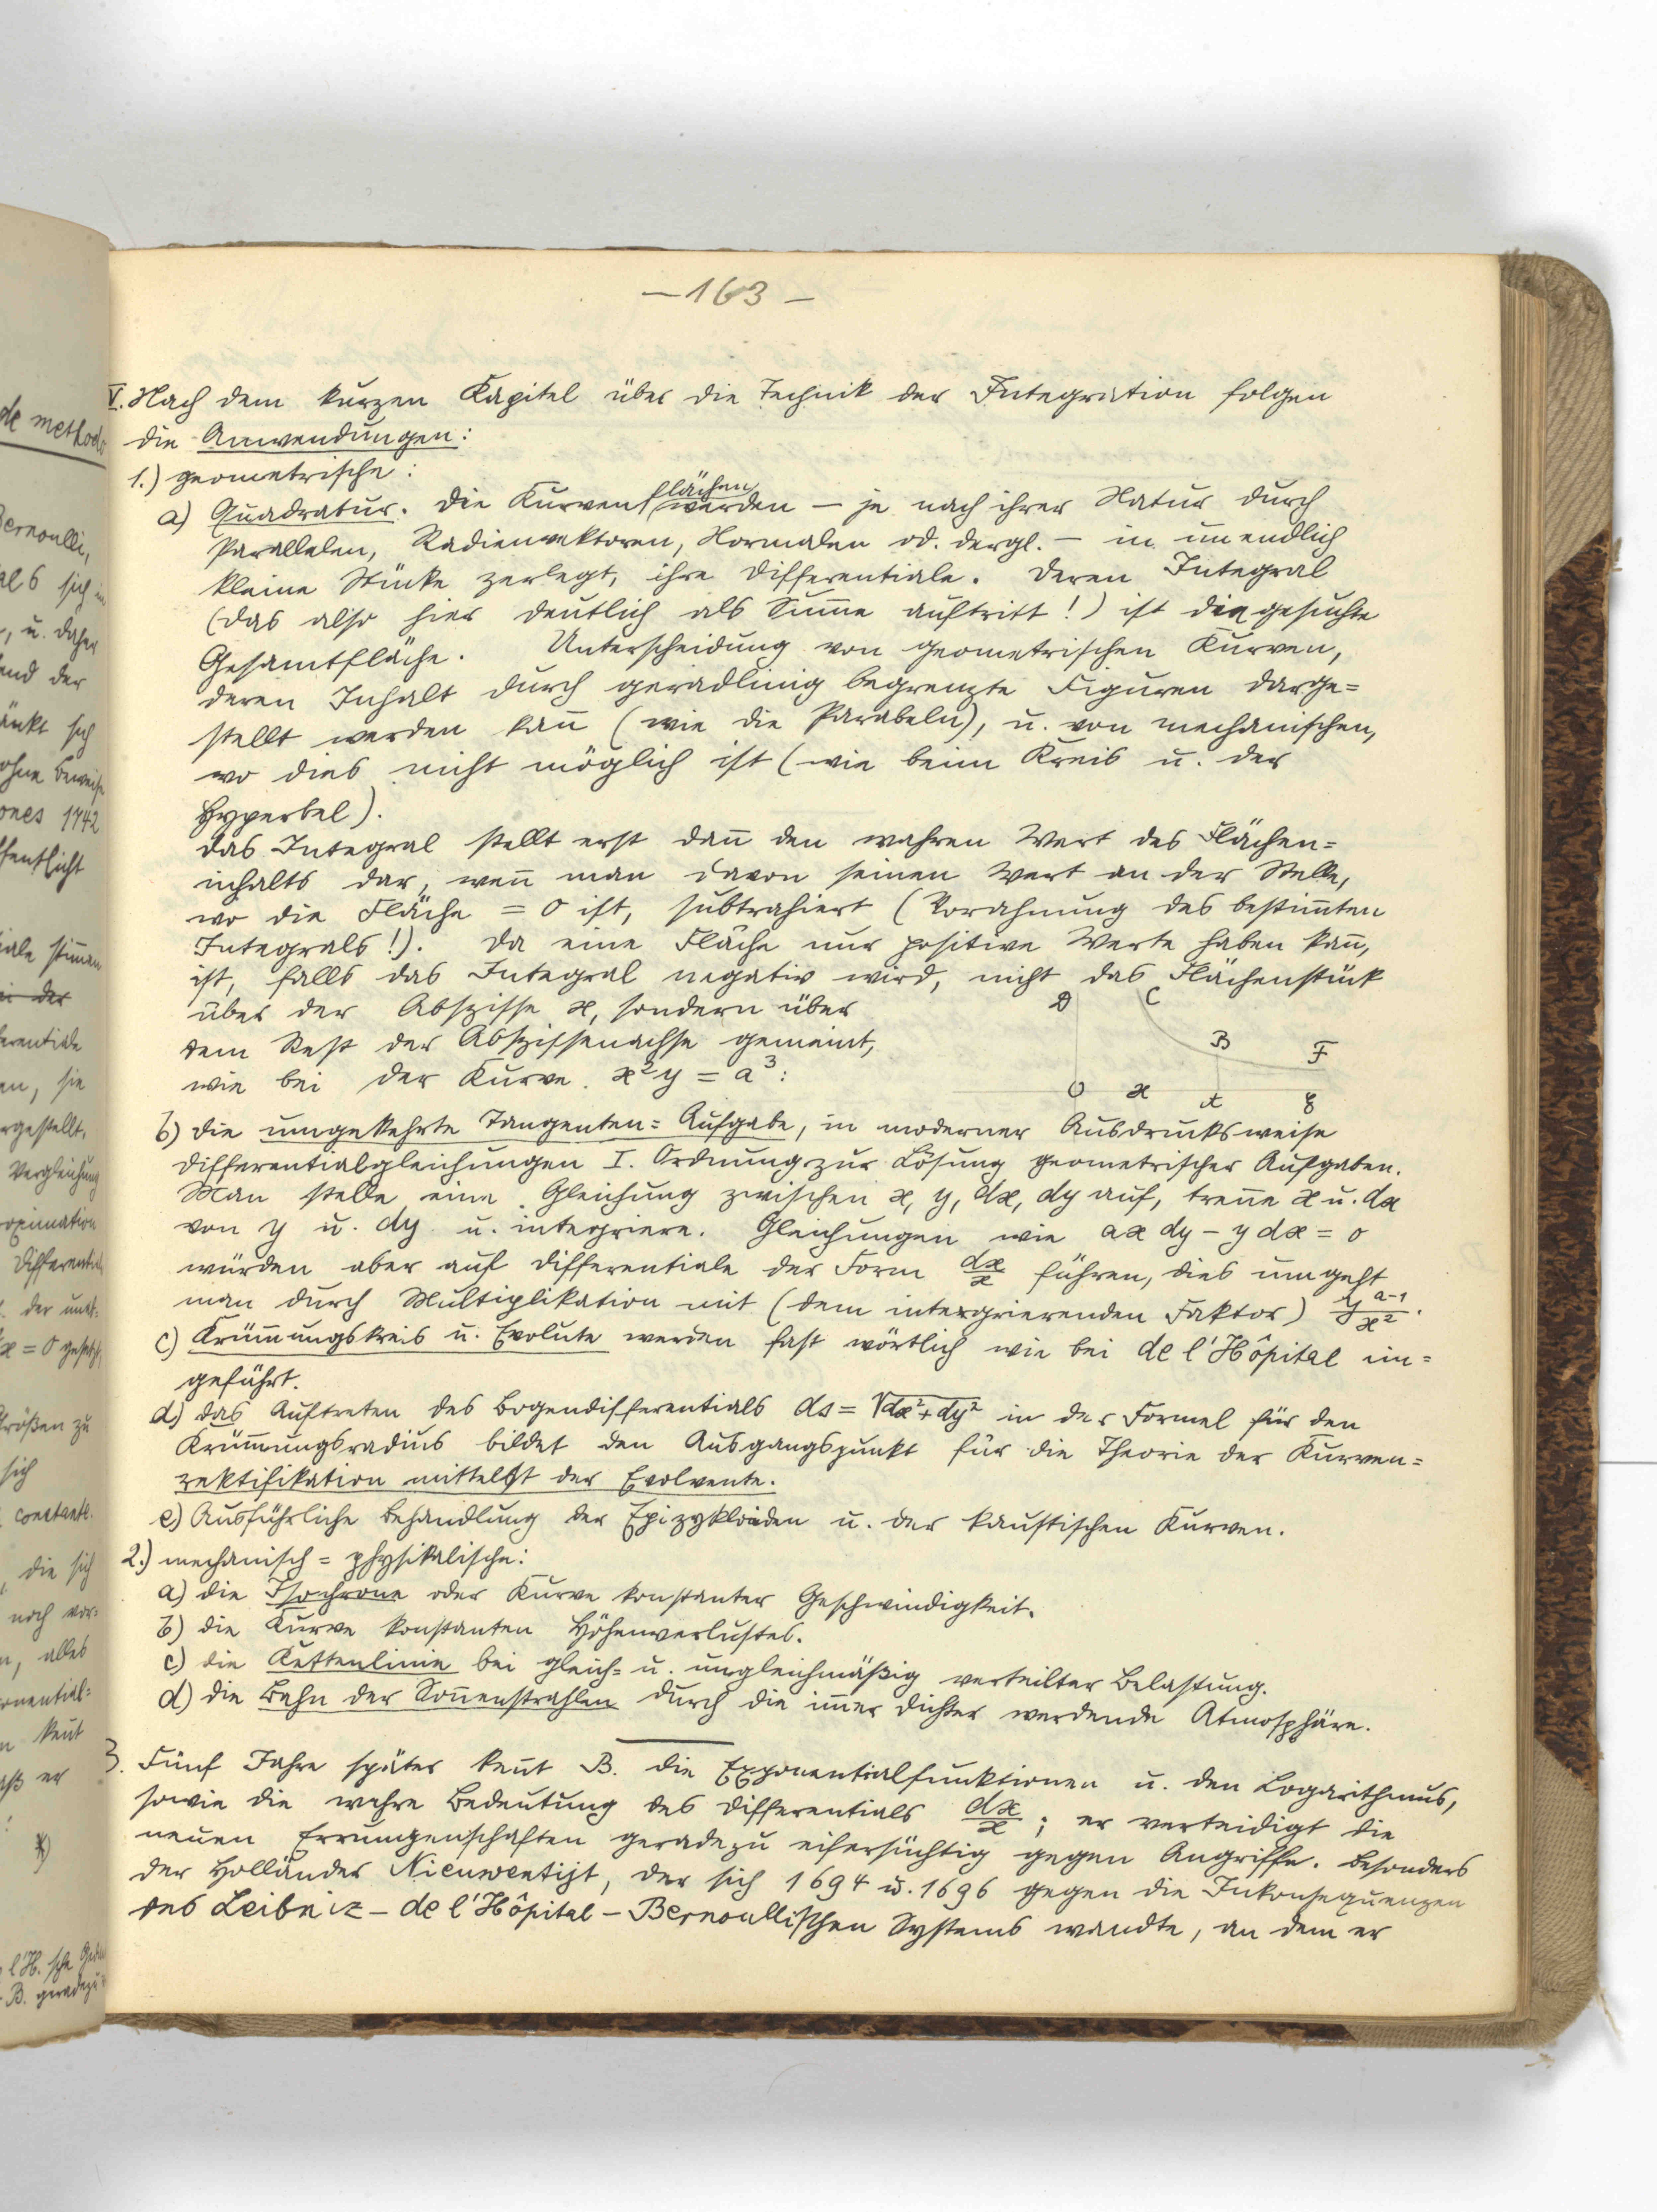 de methodo
Bernoulli,
als sich im
, u. daher
end der
änkt sich
ohne Beweise
ones 1742
ffentlicht
iale stim̅en
in der
erentiale
en, sie
rgestellt.
Vergleichung
roximation
Differential
x = 0 gesetzt,
Größen zu
sich
constante.
, die sich
noch vor=
n, alles
onential=
n keñt
aß er
:
*)
l'H. sche
B. geradezu
— 163 —
V. Nach dem kurzen Kapitel über die Technik der Integration folgen
die Anwendungen:
1.) geometrische:
a) Quadratur. Die Kurvenflächen werden — je nach ihrer Natur durch
Parallelen, Radienvektoren, Normalen od. dergl. — in unendlich
kleine Stücke zerlegt, ihre Differentiale. Deren Integral
(das also hier deutlich als Sum̅e auftritt!) ist die gesuchte
Gesamtfläche. Unterscheidung von geometrischen Kurven,
deren Inhalt durch geradlinig begrenzte Figuren darge=
stellt werden kan̅ (wie die Parabeln), u. von mechanischen,
wo dies nicht möglich ist (wie beim Kreis u. der
Hyperbel).
Das Integral stellt erst dan̅ den wahren Wert des Flächen=
inhalts dar, wen̅ man davon seinen Wert an der Stelle,
wo die Fläche = 0 ist, subtrahiert (Vorahnung des bestim̅ten
Integrals!). Da eine Fläche nur positive Werte haben kan̅,
ist, falls das Integral negativ wird, nicht das Flächenstück
über der Abszisse x, sondern über
dem Rest der Abszissenachse gemeint,
wie bei der Kurve x²y = a³:
D C
B F
O x A E
b) die umgekehrte Tangenten=Aufgabe, in moderner Ausdrucksweise
Differentialgleichungen I. Ordnung zur Lösung geometrischer Aufgaben.
Man stelle eine Gleichung zwischen x, y, dx, dy auf, tren̅e x u. dx
von y u. dy u. integriere. Gleichungen wie ax dy − y dx = 0
würden aber auf Differentiale der Form dx/x führen, dies umgeht
man durch Multiplikation mit (dem integrierenden Faktor) y^(a−1)/x².
c) Krüm̅ungskreis u. Evolute werden fast wörtlich wie bei de l'Hôpital ein=
geführt.
d) das Auftreten des Bogendifferentials ds = √dx²+dy² in der Formel für den
Krüm̅ungsradius bildet den Ausgangspunkt für die Theorie der Kurven=
rektifikation mittelst der Evolvente.
e) Ausführliche Behandlung der Epizykloiden u. der kaustischen Kurven.
2.) mechanisch=physikalische:
a) die Isochrone oder Kurve konstanter Geschwindigkeit.
b) die Kurve konstanten Höhenverlustes.
c) die Kettenlinie bei gleich= u. ungleichmäßig verteilter Belastung.
d) die Bahn der Son̅enstrahlen durch die im̅er dichter werdende Atmosphäre.
3. Fünf Jahre später ken̅t B. die Exponentialfunktionen u. den Logarithmus,
sowie die wahre Bedeutung des Differentials dx/x; er verteidigt die
neuen Errungenschaften geradezu eifersüchtig gegen Angriffe. Besonders
der Holländer Nieuwentijt, der sich 1694 u. 1696 gegen die Inkonsequenzen
des Leibniz – de l'Hôpital – Bernoullischen Systems wandte, an dem er